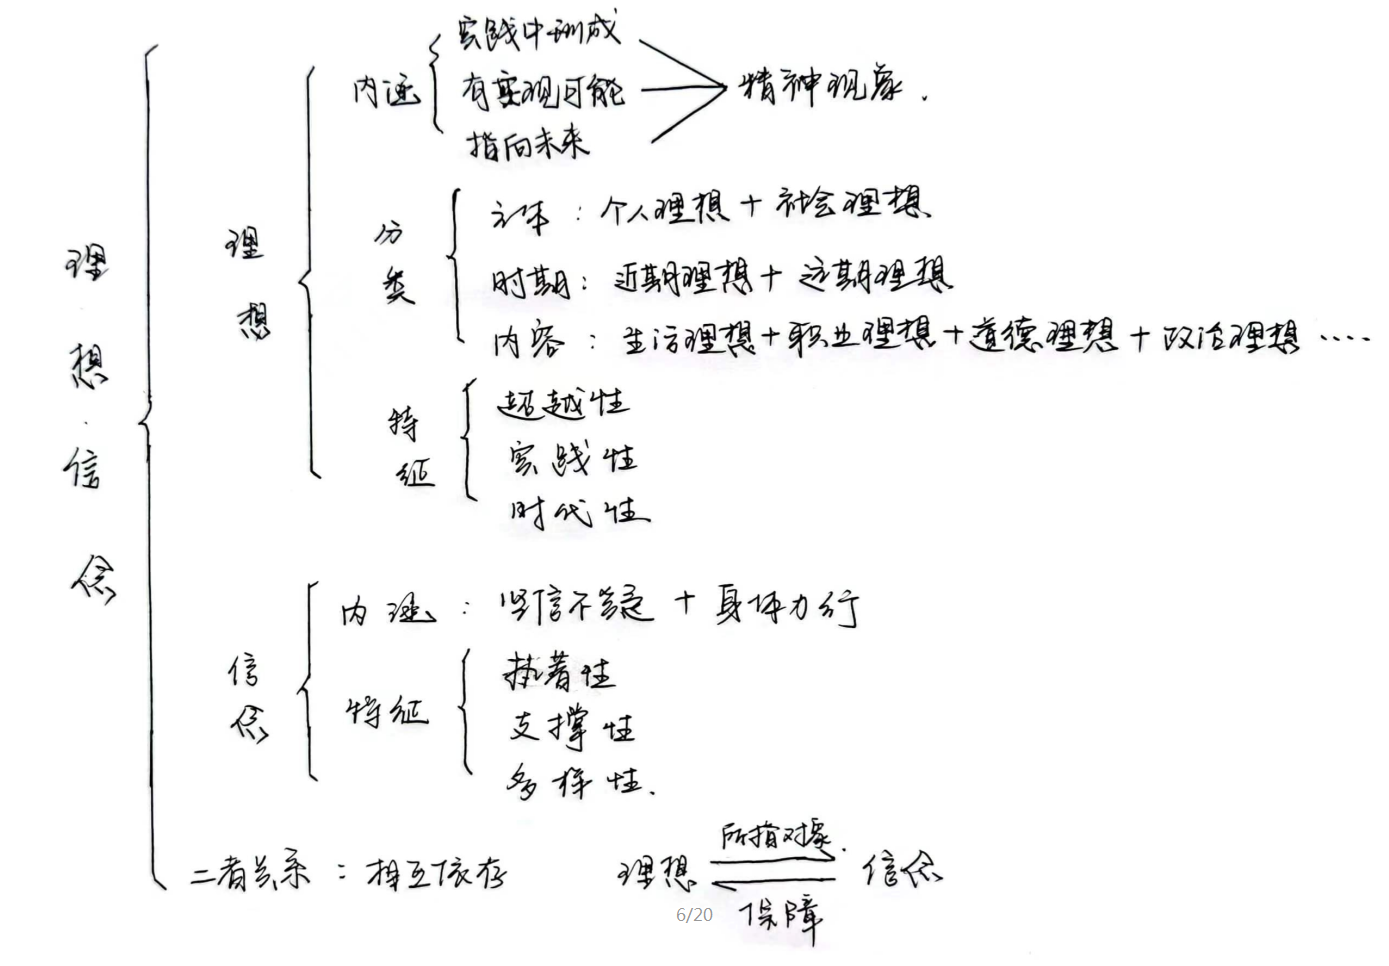 理想·信念
理想
内涵
实践中形成
有实现可能
指向未来
精神现象.
分类
主体：个人理想+社会理想
时期：近期理想+远期理想
内容：生活理想+职业理想+道德理想+政治理想....
特征
超越性
实践性
时代性
信念
内涵：坚信不疑+身体力行
特征
执着性
支撑性
多样性.
二者关系：相互依存
理想 所指对象. 信念
保障
6/20